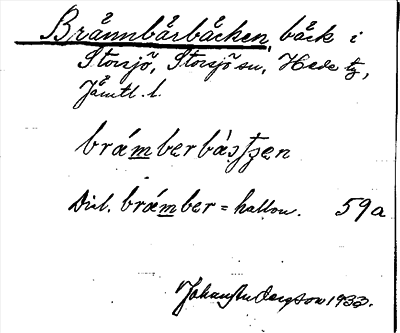 Brännbärbäcken, bäck i
Storsjö, Storsjö sn, Hede tg,
Jämtl. l.
brámberbàʃʃʒen
Dial. brámber = hallon. 59a
Johan Andersson 1933.